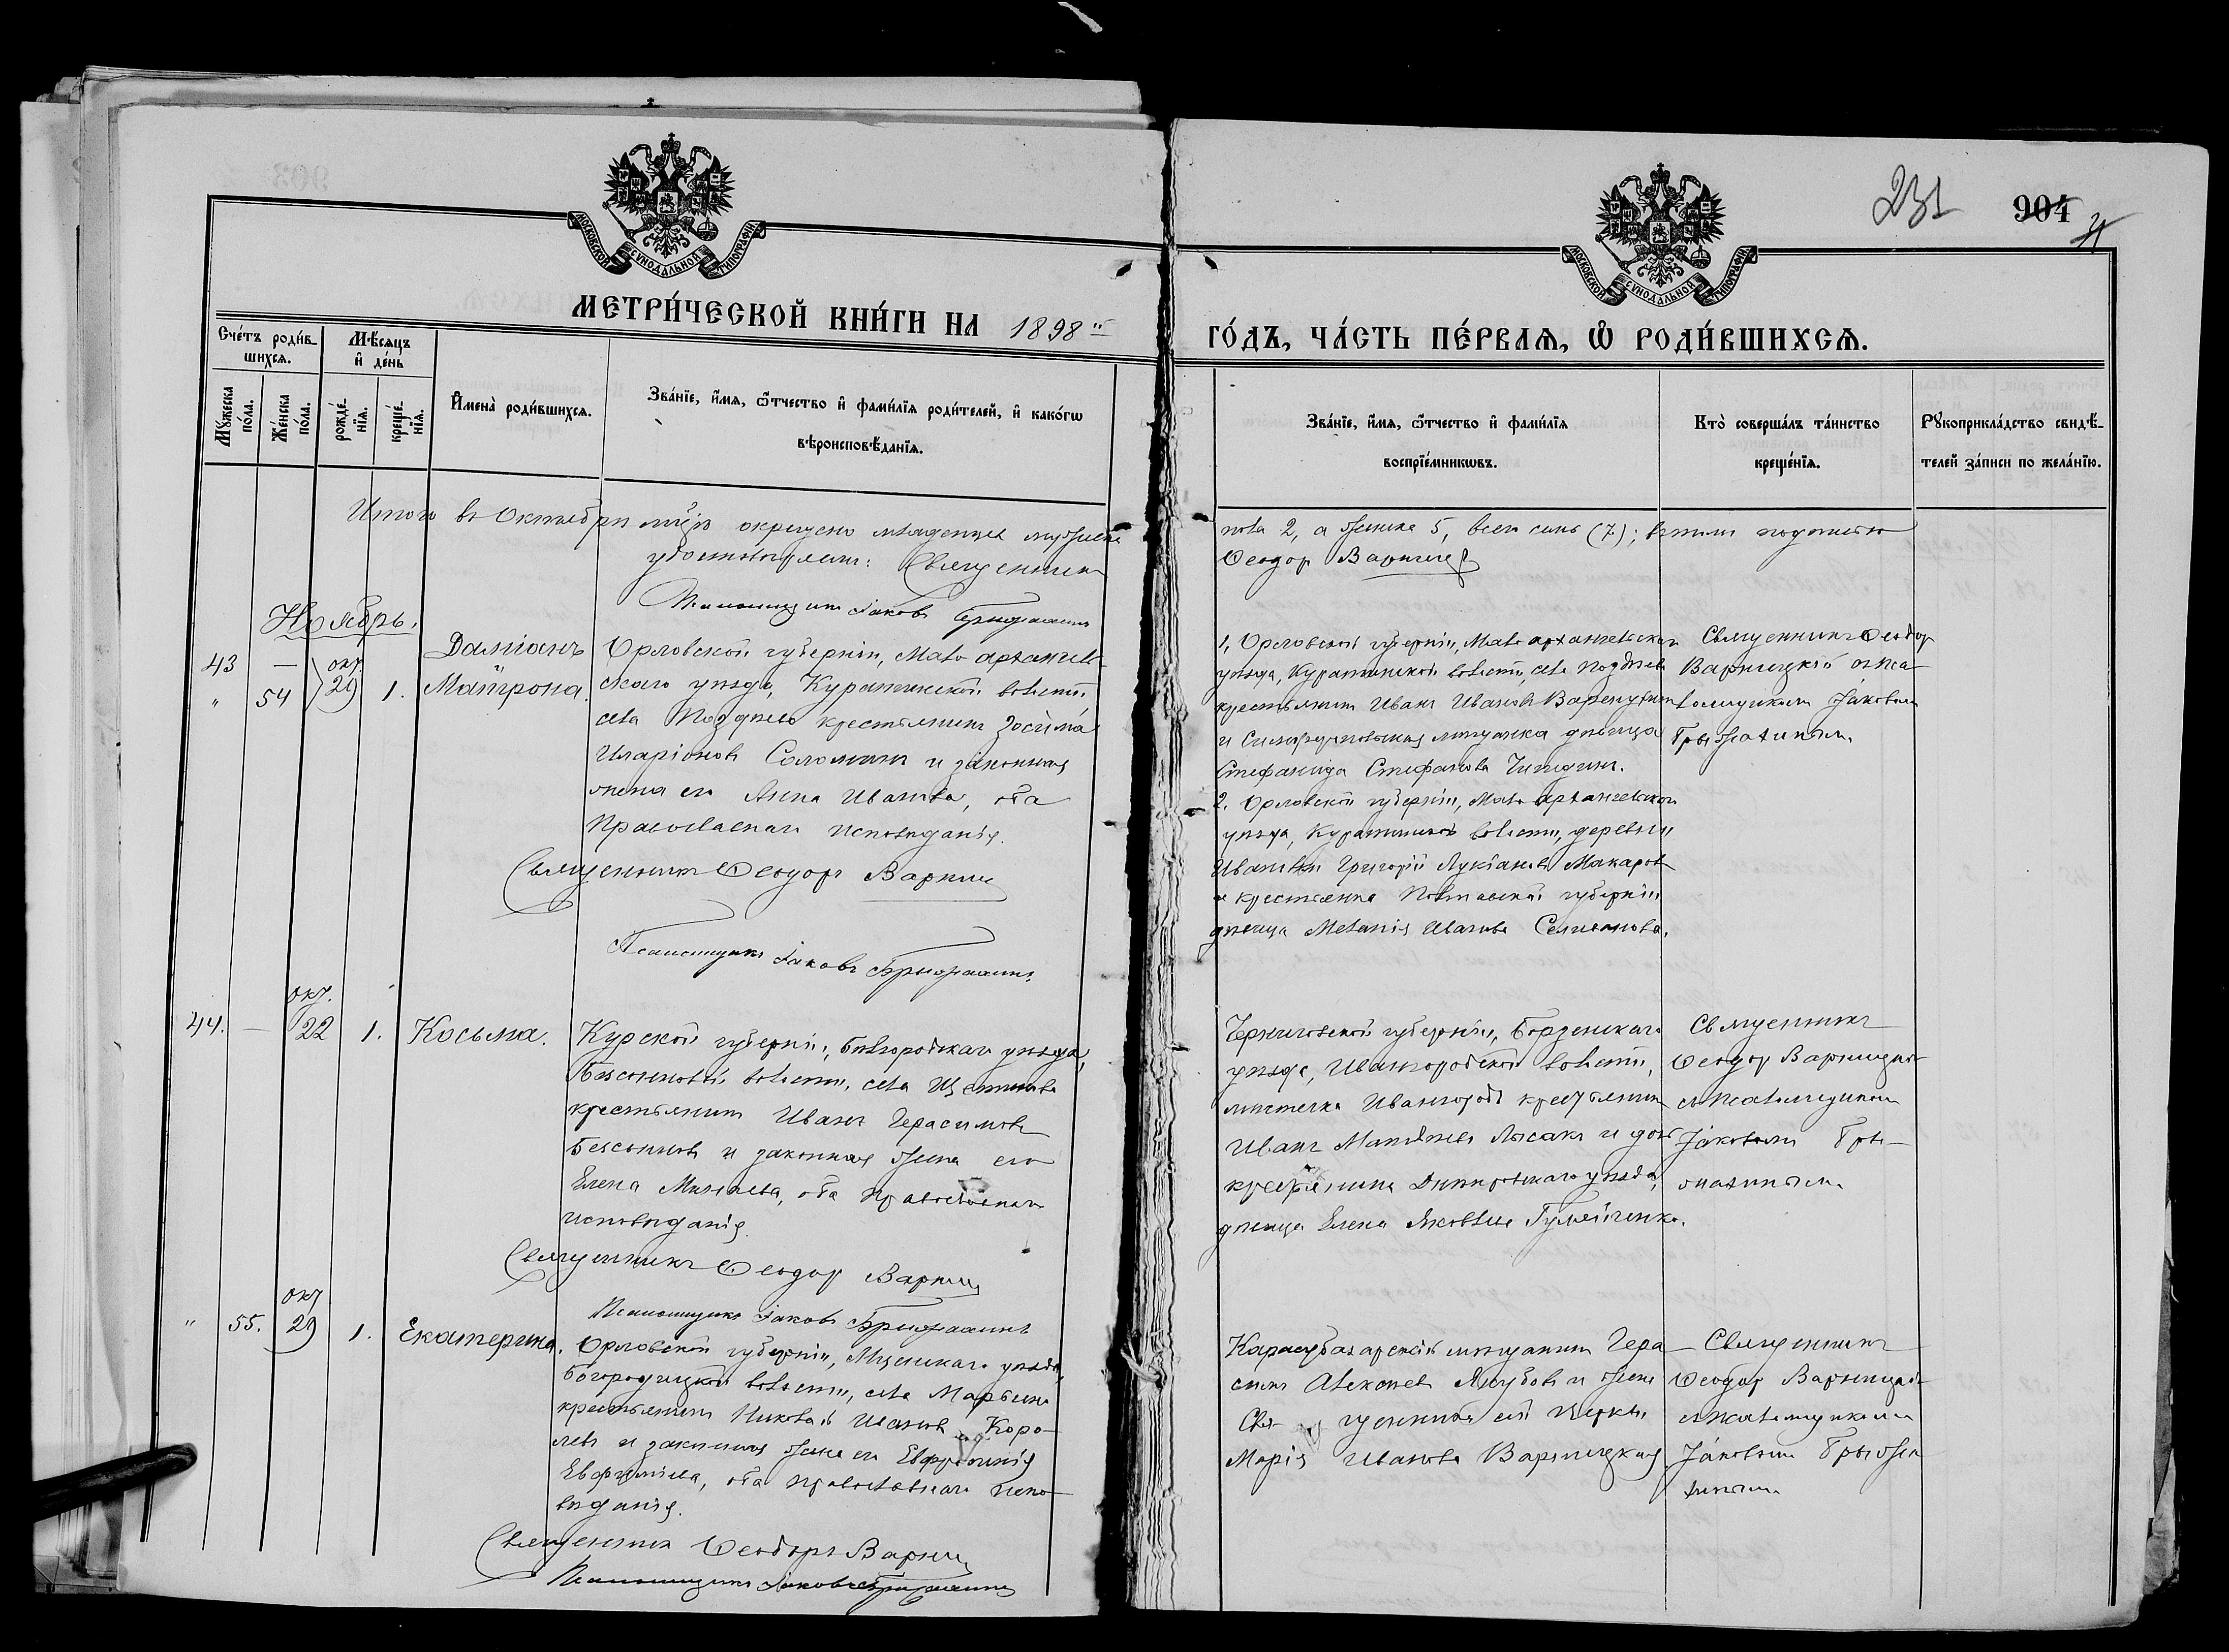 231 904
МОСКОВСКОЙ СѴНОДАЛЬНОЙ ТИПОГРАФІИ
МОСКОВСКОЙ СѴНОДАЛЬНОЙ ТИПОГРАФІИ
МЕТРИ́ЧЕСКОЙ КНИ́ГИ НА 1898 ГО́ДЪ, ЧА́СТЬ ПЕ́РВАЯ, Ѡ҆ РОДИ́ВШИХСЯ.
Сче́тъ роди́в-
шихся.
Мѣ́сяцъ
и҆ де́нь
Мꙋ́жеска по́ла.
Же́нска по́ла.
рожде́-
нїя.
креще́-
нїя.
И҆мена̀ роди́вшихся.
Зва́нїе, и҆́мя, ѻ҆́тчество и҆ фами́лїя роди́телей, и҆ како́гѡ
вѣроисповѣ́данїя.
Зва́нїе, и҆́мя, ѻ҆́тчество и҆ фами́лїя
воспрїе́мникѡвъ.
Кто̀ соверша́лъ та́инство
креще́нїя.
Рꙋкоприкла́дство свидѣ́-
телей за́писи по жела́нїю.
Итого въ Октябрѣ мцѣ окрещено младенцевъ мужеска
пола 2, а женска 5, всего семь (7);
удостовѣряемъ: Священникъ
Ѳеодоръ Варниц
Псаломщикъ Іаковъ
Ноябрь.
43 — окт. 29 1. Даміанъ
" 54 Матрона.
Орловской губерніи, Мало архангель-
скаго уѣзда, Куракинской волости
села Позднѣево крестьянинъ Зосима
Иларіоновъ Соломинъ и законная
жена его Анна Иванова, оба
Православнаго исповѣданія.
Священникъ Ѳеодоръ Варниц
Псаломщикъ Іаковъ
1, Орловской губерніи, Мало архангельскаго
уѣзда, Куракинской волости, села Позднѣева
крестьянинъ Иванъ Ивановъ
и Симферопольская мѣщанка дѣвица
Стефанида Стефанова
2. Орловской губерніи, Мало архангельскаго
уѣзда, Куракинской волости, деревни
Ивановки Григорій Лукіановъ Макаровъ
и крестьянка Полтавской губерніи
дѣвица Меланія Иванова
Священникъ Ѳеодоръ
Варницкій съ Пса-
ломщикомъ Іаковомъ
44. — окт. 22 1. Косьма.
Курской губерніи, Бѣлгородскаго уѣзда,
Безсоновской волости, села Щетинова
крестьянинъ Иванъ Герасимовъ
Безсоновъ и законная жена его
Елена Минаева, оба православнаго
исповѣданія.
Священникъ Ѳеодоръ Варниц
Псаломщикъ Іаковъ
Черниговской губерніи, Борзенскаго
уѣзда, Ивангородской волости,
мѣстечка Ивангорода крестьянинъ
Иванъ Матвѣевъ Лысакъ и дочь
крестьянина Днѣпровскаго уѣзда,
дѣвица Елена Яковлева
Священникъ
Ѳеодоръ Варницкій
съ Псаломщикомъ
Іаковомъ
" 55. окт 29 1. Екатерина.
Орловской губерніи, Мценскаго уѣзда,
Богородицкой волости, села Марьина
крестьянинъ Николай Ивановъ Коро-
левъ и законная жена его Евфросинія
Евфиміева, оба православнаго испо-
вѣданія.
Священникъ Ѳеодоръ Варниц
Псаломщикъ Іаковъ
Карасубазарскій мѣщанинъ Гера-
симъ Алексѣевъ и жена
Священника сей церкви
Марія Иванова Варницкая
Священникъ
Ѳеодоръ Варницкій
съ псаломщикомъ
Іаковомъ